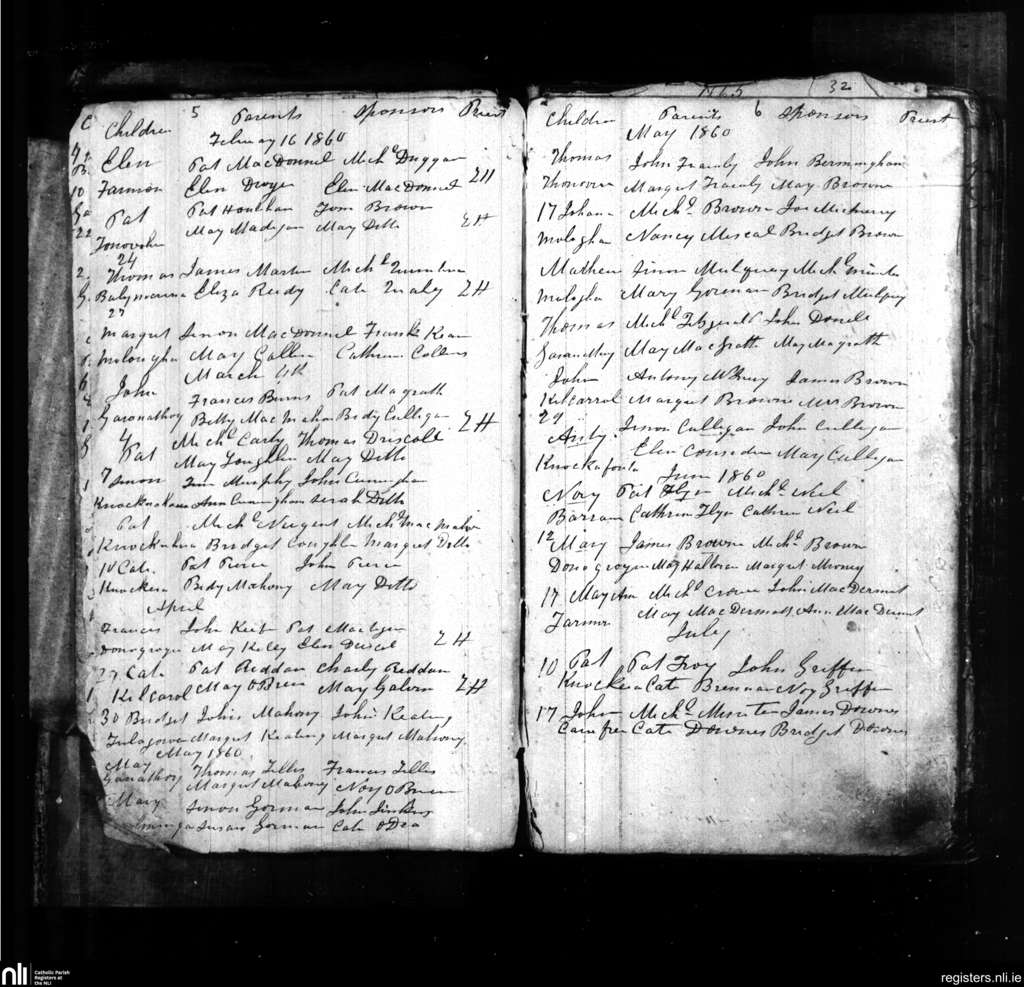 Children 5 Parents Sponsors Priest
Februay 16 1860
Elen Pat MacDonnel Michl Duggan
Farmon Elen Dwyer Elen MacDonnel ZH
Pat Pat Houlihan Tom Brown
22 May Madigan May Ditto ZH
24
Thomas James Martin Michl
Eliza Reidy Cate ZH
27
Margut Senon MacDonnel Frank Kean
Molougha May Cullen Cathrine Collins
March 4th
John Francis Burns Pat Magrath
Garonathoy Betty Mac Mahon Bedy Culligan ZH
4 Michl Carty Thomas Driscoll
Pat May Loughlin May Ditto
7 Senon Tim Murphy John Cuningham
Knocknahuna Ann Cuningham Sarah Ditto
Pat Michl Neugent Michl Mac Mahon
Knocknhna Bridget Coughlin Margret Ditto
10 Cate Pat Pierce John Pierce
Knockera Bedy Mahony May Ditto
April
Frances John Keefe Pat
Donogroge May Keley Elen Driscol ZH
27 Cate Pat Reddan Charly Reddan
Kilcarol May O Brien May Galvin ZH
30 Bridget John Mahony John Keating
Tulagower Margut Keating Margut Mahony
May May 1860
Garnathoy Thomas Lillis Francis Lillis
Margut Mahony Noy O Brien
Mary Senon Gorman John Jinkins
Susan Gorman Cate O Dea
1865 32
Children Parents 6 Sponsors Priest
May 1860
Thomas John Frawly John Bermingham
Margut Frawly May Browne
17 Johana Michl Brown Joe
Molougha Nancy Mescal Bridget Brown
Mathew Sinon Mulquey Michl
Molougha Mary Gorman Bridget Mulquey
Thomas Michl Fitzgerald John Donell
May MacGrath May Magrath
John Antony James Brown
Kilcarrol Margut Browne Mrs Brown
29
Anty Sinon Culligan John Culligan
Elen Considin May Culligan
Knockafonta
June 1860
Nory Pat Flyn Michl Neil
Cathrin Flyn Cathrin Neil
12 Mary James Browne Michl Brown
Donogroge May Halloran Margut
17 May Ann Michl Crowe John MacDermot
Farmor May MacDermott Ann MacDermot
July
10 Pat Pat Troy John Griffin
Knockera Cate Brennan Noy Griffin
17 John Michl Miniter James Downes
Cate Downes Bridget Downes
nli Catholic Parish
Registers at
the NLI
registers.nli.ie